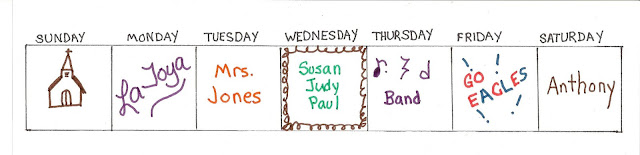 SUNDAY MONDAY TUESDAY WEDNESDAY THURSDAY FRIDAY SATURDAY
La Toya
Mrs.
Jones
Susan
Judy
Paul
Band
GO
EAGLES
Anthony